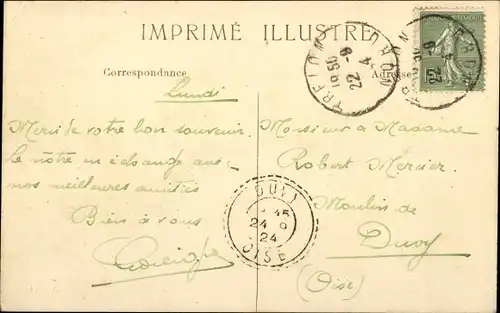 IMPRIMÉ ILLUSTRÉ
Correspondance
Adresse
TRELON
NORD
22 -9
24
Lundi
Merci de votre bon souvenir.
le nôtre en échange avec
nos meilleures amitiés
Bien à vous
Monsieur & Madame
Robert Mercier
Moulin de
Duvy
(Oise)
DUVY
24 9
24
OISE